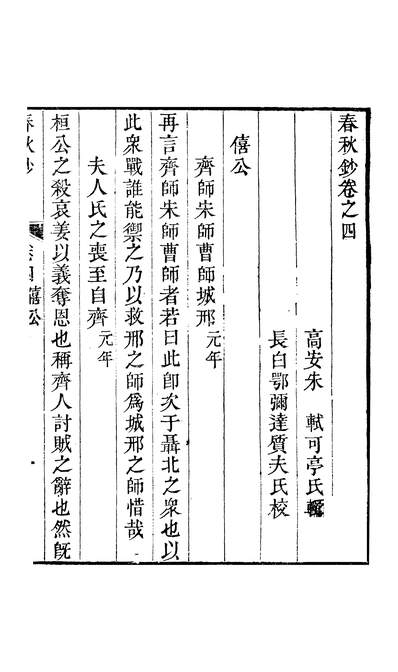 春秋鈔卷之四
高安朱　軾可亭氏輯
長白鄂彌達質夫氏校
僖公
齊師宋師曹師城邢元年
再言齊師宋師曹師者若曰此卽次于聶北之衆也以
此衆戰誰能禦之乃以救邢之師爲城邢之師惜哉
夫人氏之喪至自齊元年
桓公之殺哀姜以義奪恩也稱齊人討賊之辭也然旣
春秋鈔　卷四僖公